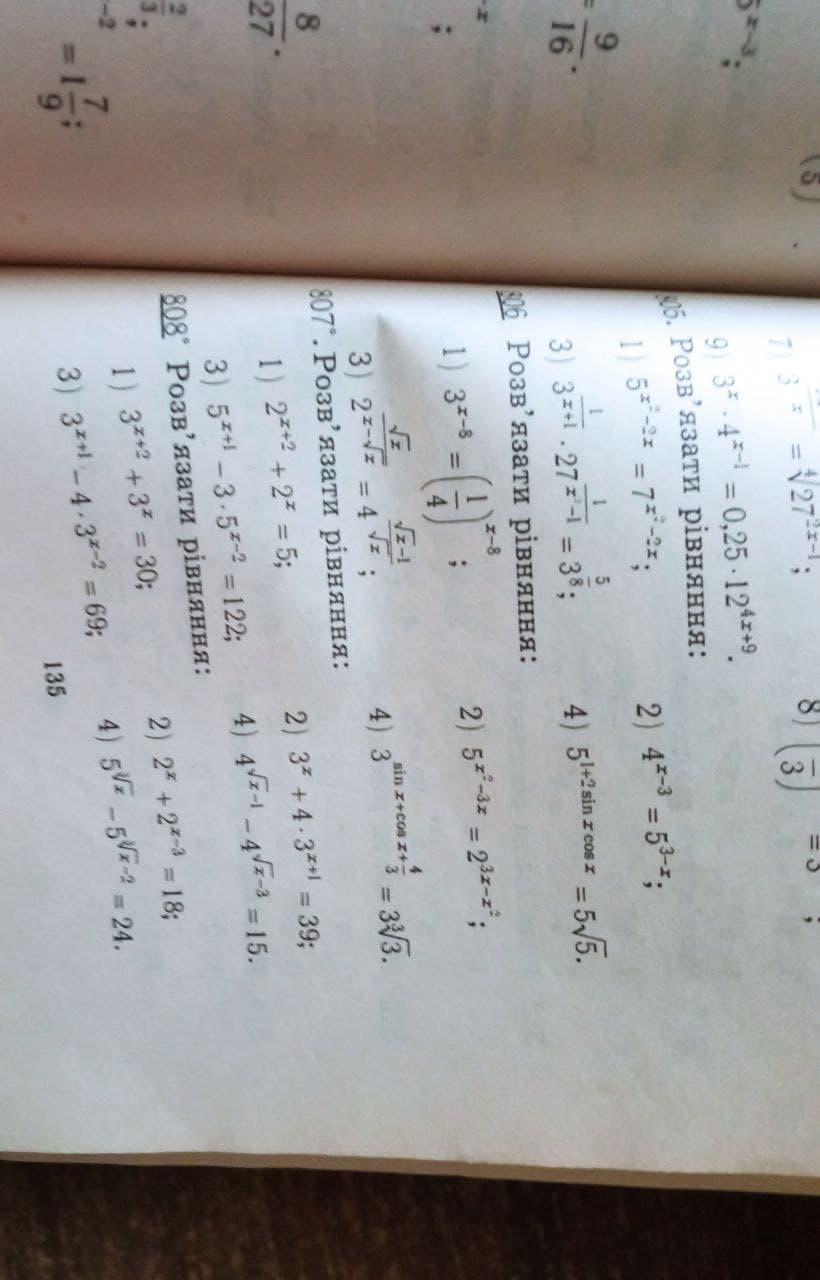 5ˣ⁻³;
= 9/16.
;
8/27.
= 1 7/9;
7) 3 = ⁴√27²ˣ⁻¹;
8) (—/3) = 3 ;
9) 3ˣ · 4ˣ⁻¹ = 0,25 · 12⁴ˣ⁺⁹.
Розв'язати рівняння:
1) 5^(x²−2x) = 7^(x²−2x);
2) 4^(x−3) = 5^(3−x);
3) 3^(1/(x+1)) · 27^(1/(x²−1)) = 3^(5/8);
4) 5^(1+2 sin x cos x) = 5√5.
806 Розв'язати рівняння:
1) 3^(x−8) = (1/4)^(x−8);
2) 5^(x²−3x) = 2^(3x−x²);
3) 2^(√x/(x−√x)) = 4^((√x−1)/√x);
4) 3^(sin x+cos x+4/3) = 3∛3.
807°. Розв'язати рівняння:
1) 2ˣ⁺² + 2ˣ = 5;
2) 3ˣ + 4 · 3ˣ⁺¹ = 39;
3) 5ˣ⁺¹ − 3 · 5ˣ⁻² = 122;
4) 4^(√x−1) − 4^(√x−3) = 15.
808° Розв'язати рівняння:
1) 3ˣ⁺² + 3ˣ = 30;
2) 2ˣ + 2ˣ⁻³ = 18;
3) 3ˣ⁺¹ − 4 · 3ˣ⁻² = 69;
4) 5^(∛x) − 5^(∛x−2) = 24.
135